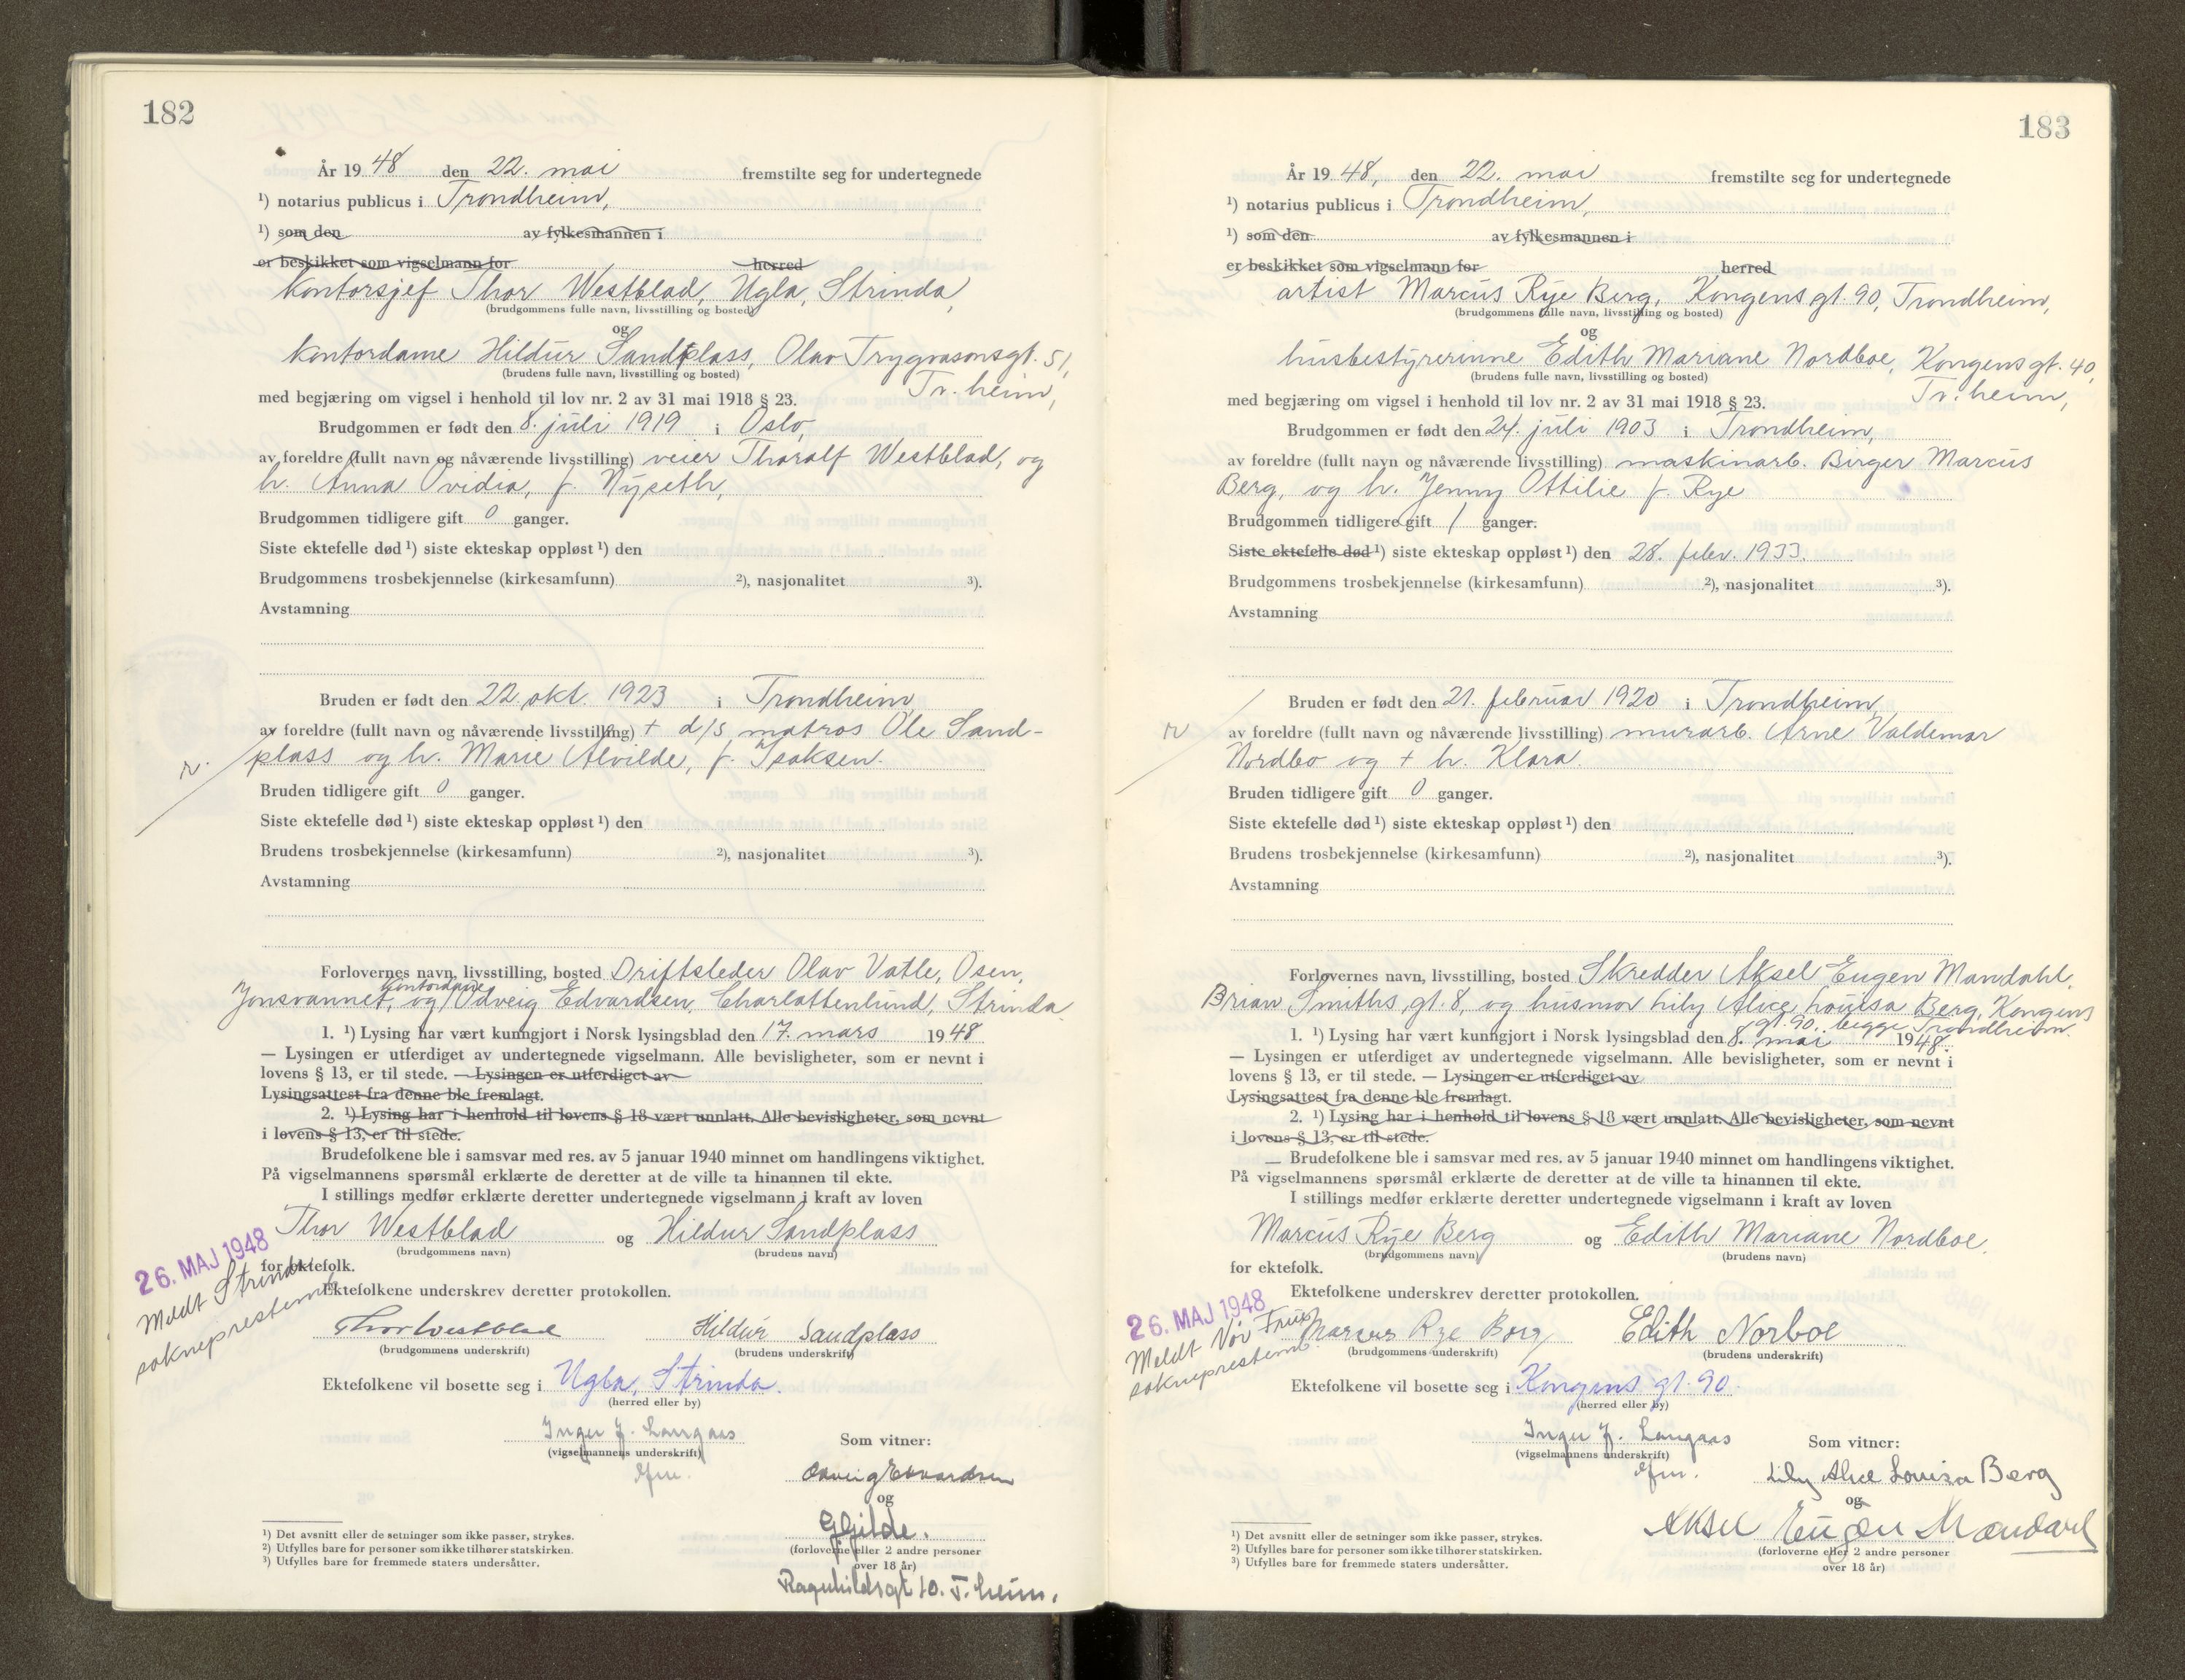 182
År 19 48 den 22. mai fremstilte seg for undertegnede
¹) notarius publicus i Trondheim,
¹) som den av fylkesmannen i
er beskikket som vigselmann for herred
kontorsjef Thor Westblad, Ugla, Strinda,
(brudgommens fulle navn, livsstilling og bosted)
og
kontordame Hildur Sandplass, Olav Trygvasonsgt. 51,
(brudens fulle navn, livsstilling og bosted)
Tr. heim,
med begjæring om vigsel i henhold til lov nr. 2 av 31 mai 1918 § 23.
Brudgommen er født den 8. juli 1919 i Oslo,
av foreldre (fullt navn og nåværende livsstilling) veier Tharalf Westblad, og
h. Anna Ovidia, f. Nyseth,
Brudgommen tidligere gift 0 ganger.
Siste ektefelle død ¹) siste ekteskap oppløst ¹) den
Brudgommens trosbekjennelse (kirkesamfunn) ²), nasjonalitet ³).
Avstamning
Bruden er født den 22. okt. 1923 i Trondheim
av foreldre (fullt navn og nåværende livsstilling) + d/s matros Ole Sand-
r. plass og h. Marie Alvilde, f. Isaksen.
Bruden tidligere gift 0 ganger.
Siste ektefelle død ¹) siste ekteskap oppløst ¹) den
Brudens trosbekjennelse (kirkesamfunn) ²), nasjonalitet ³).
Avstamning
Forlovernes navn, livsstilling, bosted Driftsleder Olav Vatle, Osen,
kontordame
Jonsvannet, og Odveig Edvardsen, Charlottenlund, Strinda
1. ¹) Lysing har vært kunngjort i Norsk lysingsblad den 17. mars 19 48
— Lysingen er utferdiget av undertegnede vigselmann. Alle bevisligheter, som er nevnt i
lovens § 13, er til stede. — Lysingen er utferdiget av
Lysingsattest fra denne ble fremlagt.
2. ¹) Lysing har i henhold til lovens § 18 vært unnlatt. Alle bevisligheter, som nevnt
i lovens § 13, er til stede.
Brudefolkene ble i samsvar med res. av 5 januar 1940 minnet om handlingens viktighet.
På vigselmannens spørsmål erklærte de deretter at de ville ta hinannen til ekte.
I stillings medfør erklærte deretter undertegnede vigselmann i kraft av loven
Thor Westblad og Hildur Sandplass
(brudgommens navn) (brudens navn)
26. MAJ 1948
for ektefolk.
Meldt Strinda
sokneprestemb.
Ektefolkene underskrev deretter protokollen.
Thor Westblad Hildur Sandplass
(brudgommens underskrift) (brudens underskrift)
Ektefolkene vil bosette seg i Ugla, Strinda.
(herred eller by)
Inger J. Langaas
(vigselmannens underskrift)
Som vitner:
Odveig Edvardsen
og
G Gilde.
(forloverne eller 2 andre personer
over 18 år)
Ragnhildsgt 10. T.heim.
¹) Det avsnitt eller de setninger som ikke passer, strykes.
²) Utfylles bare for personer som ikke tilhører statskirken.
³) Utfylles bare for fremmede staters undersåtter.
183
År 19 48, den 22. mai fremstilte seg for undertegnede
¹) notarius publicus i Trondheim,
¹) som den av fylkesmannen i
er beskikket som vigselmann for herred
artist Marcus Rye Berg, Kongens gt. 90, Trondheim,
(brudgommens fulle navn, livsstilling og bosted)
og
husbestyrerinne Edith Mariane Nordboe, Kongens gt. 40,
(brudens fulle navn, livsstilling og bosted)
Tr. heim,
med begjæring om vigsel i henhold til lov nr. 2 av 31 mai 1918 § 23.
Brudgommen er født den 24. juli 1903 i Trondheim,
av foreldre (fullt navn og nåværende livsstilling) maskinarb. Birger Marcus
Berg, og h. Jenny Ottilie f. Rye
Brudgommen tidligere gift 1 ganger.
Siste ektefelle død ¹) siste ekteskap oppløst ¹) den 28. febr. 1933.
Brudgommens trosbekjennelse (kirkesamfunn) ²), nasjonalitet ³).
Avstamning
Bruden er født den 21. februar 1920 i Trondheim,
r av foreldre (fullt navn og nåværende livsstilling) murarb. Arne Valdemar
Nordbo og + h. Klara
Bruden tidligere gift 0 ganger.
Siste ektefelle død ¹) siste ekteskap oppløst ¹) den
Brudens trosbekjennelse (kirkesamfunn) ²), nasjonalitet ³).
Avstamning
Forlovernes navn, livsstilling, bosted Skredder Aksel Eugen Mandahl,
Brian Smiths gt. 8, og husmor Lily Alice Louisa Berg, Kongens
gt. 90, begge Trondheim.
1. ¹) Lysing har vært kunngjort i Norsk lysingsblad den 8. mai 19 48.
— Lysingen er utferdiget av undertegnede vigselmann. Alle bevisligheter, som er nevnt i
lovens § 13, er til stede. — Lysingen er utferdiget av
Lysingsattest fra denne ble fremlagt.
2. ¹) Lysing har i henhold til lovens § 18 vært unnlatt. Alle bevisligheter, som nevnt
i lovens § 13, er til stede.
— Brudefolkene ble i samsvar med res. av 5 januar 1940 minnet om handlingens viktighet.
På vigselmannens spørsmål erklærte de deretter at de ville ta hinannen til ekte.
I stillings medfør erklærte deretter undertegnede vigselmann i kraft av loven
Marcus Rye Berg og Edith Mariane Nordboe.
(brudgommens navn) (brudens navn)
for ektefolk.
Ektefolkene underskrev deretter protokollen.
26. MAJ 1948
Meldt Vår Frue
sokneprestemb.
Marcus Rye Berg Edith Norboe
(brudgommens underskrift) (brudens underskrift)
Ektefolkene vil bosette seg i Kongens gt. 90.
(herred eller by)
Inger J. Langaas
(vigselmannens underskrift)
Som vitner:
Lily Alice Louiza Berg
og
Aksel Eugen Mandahl
(forloverne eller 2 andre personer
over 18 år)
¹) Det avsnitt eller de setninger som ikke passer, strykes.
²) Utfylles bare for personer som ikke tilhører statskirken.
³) Utfylles bare for fremmede staters undersåtter.